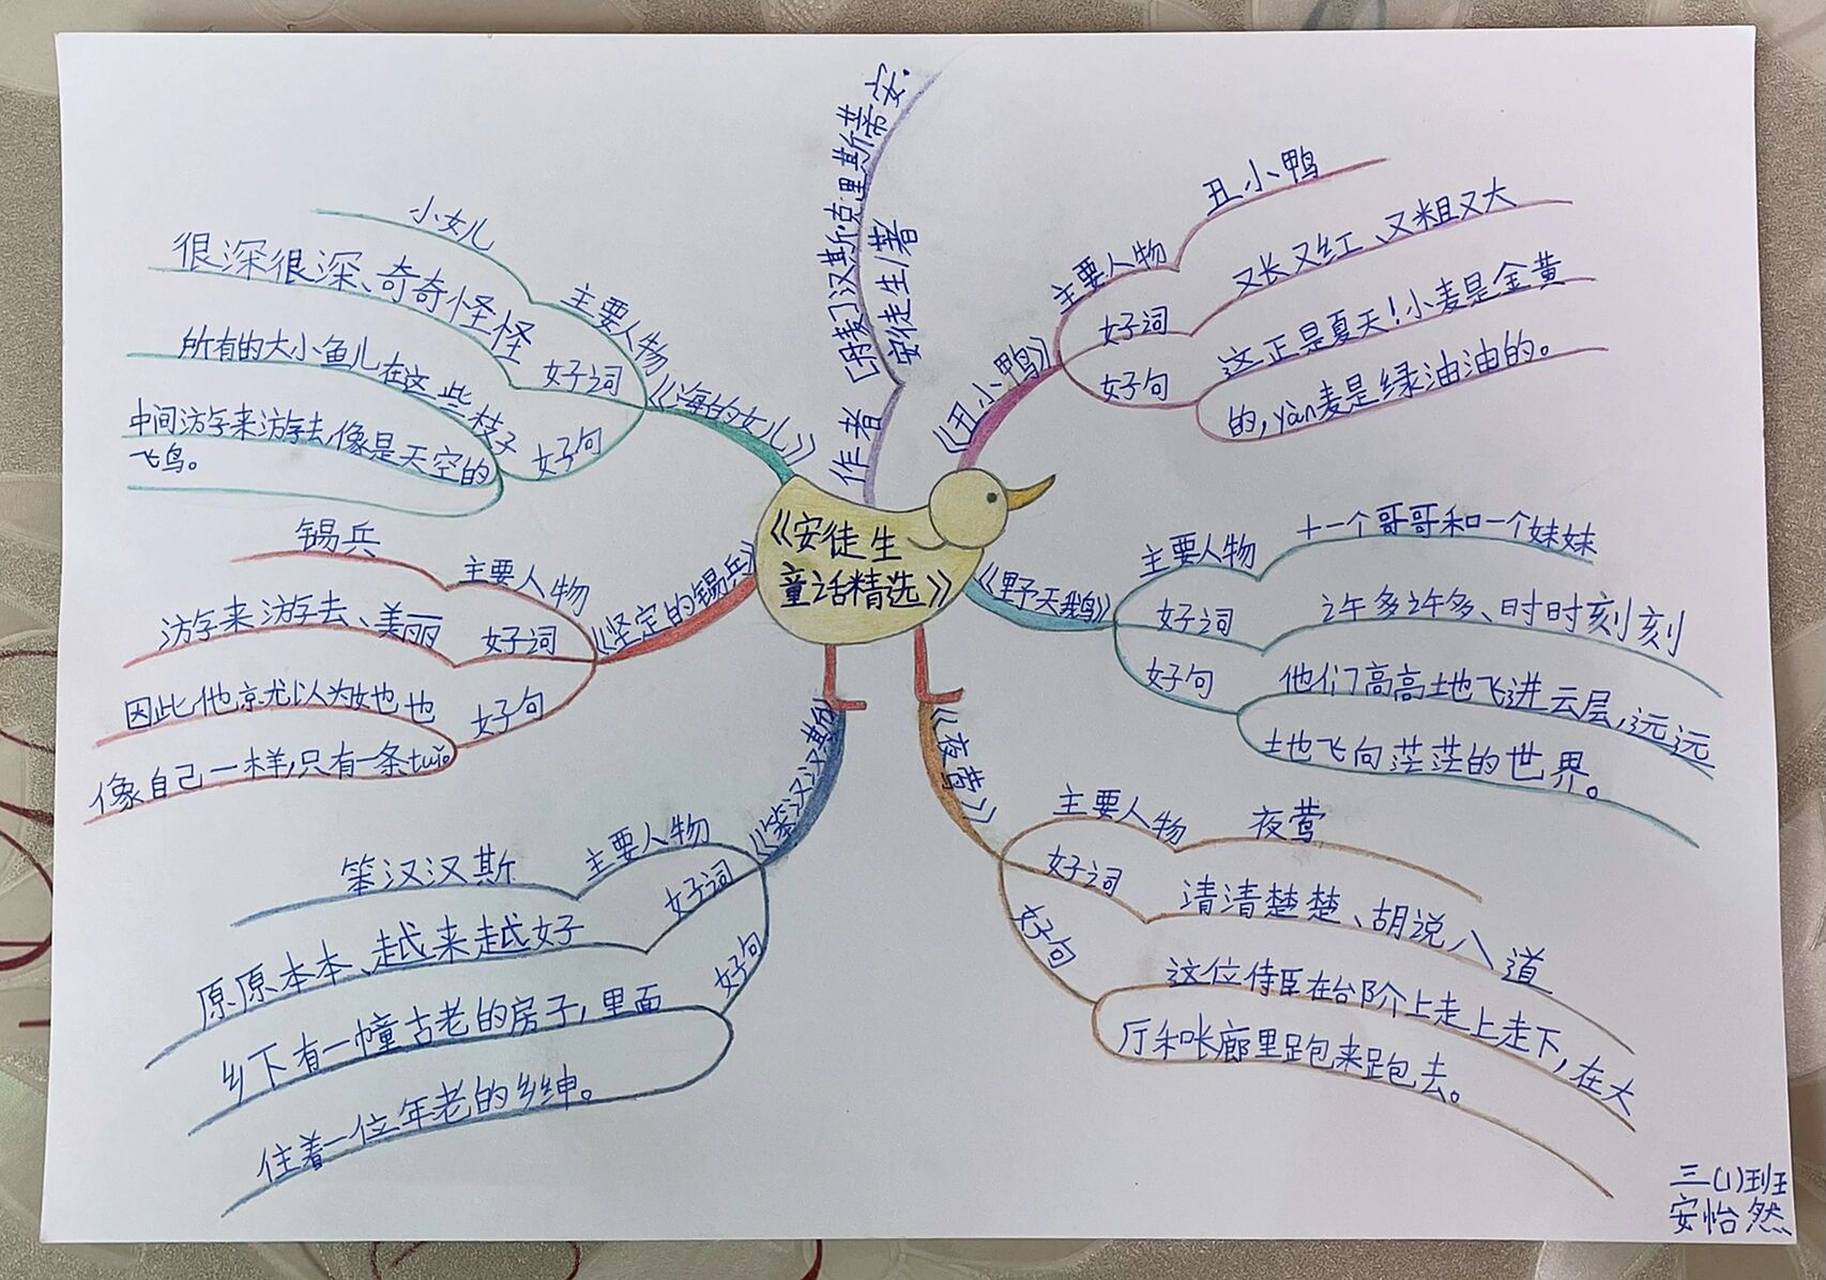 《安徒生
童话精选》
作者 [丹麦]汉斯·克里斯蒂安·
安徒生/著
《丑小鸭》
主要人物
丑小鸭
好词
又长又红、又粗又大
好句
这正是夏天!小麦是金黄
的,yàn麦是绿油油的。
《野天鹅》
主要人物
十一个哥哥和一个妹妹
好词
许多许多、时时刻刻
好句
他们高高地飞进云层,远远
地飞向茫茫的世界。
《夜莺》
主要人物
夜莺
好词
清清楚楚、胡说八道
好句
这位侍臣在台阶上走上走下,在大
厅和长廊里跑来跑去。
《笨汉汉斯》
主要人物
笨汉汉斯
好词
原原本本、越来越好
好句
乡下有一幢古老的房子,里面
住着一位年老的乡绅。
《坚定的锡兵》
主要人物
锡兵
好词
游来游去、美丽
好句
因此,他就以为她也
像自己一样,只有一条tuǐ。
《海的女儿》
主要人物
小女儿
好词
很深很深、奇奇怪怪
好句
所有的大小鱼儿在这些枝子
中间游来游去,像是天空的
飞鸟。
三(1)班
安怡然